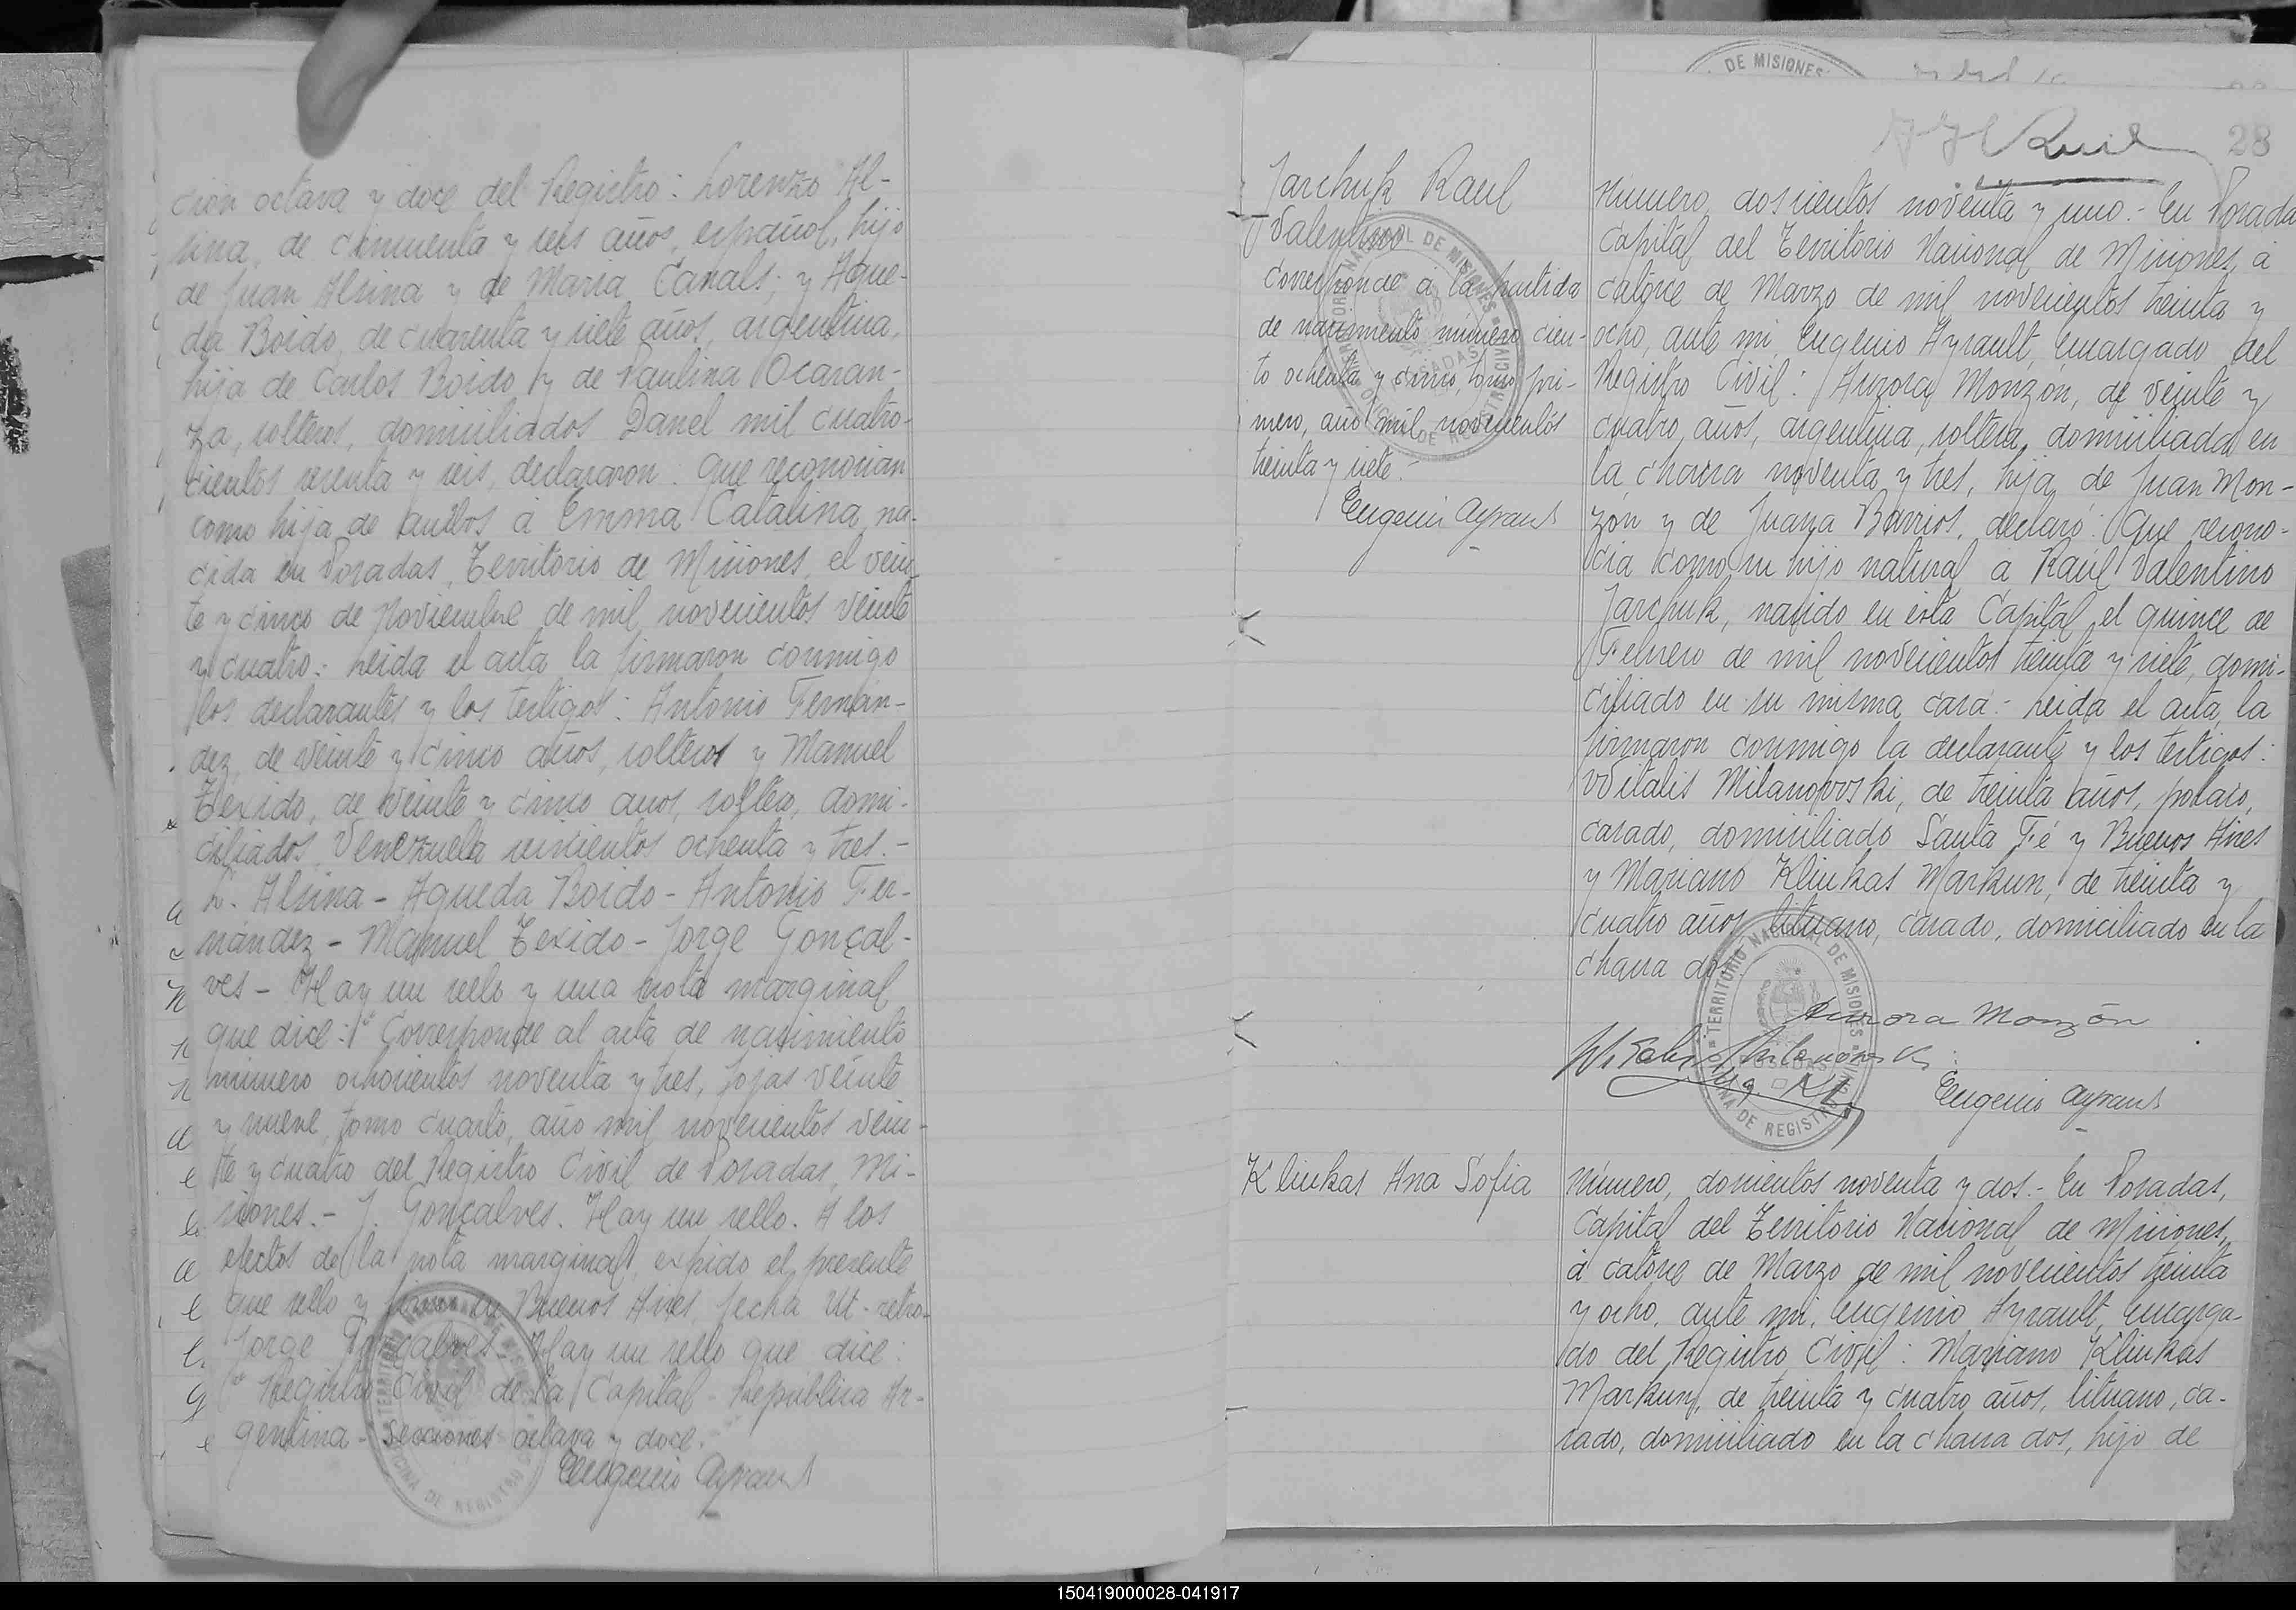 ción octava y doce del Registro: Lorenzo Al-
sina, de cincuenta y seis años, español, hijo
de Juan Alsina y de Maria Canals; y Ague-
da Boido, de cuarenta y siete años, argentina,
hija de Carlos Boido y de Paulina Ocaran-
za, solteros, domiciliados Danel mil cuatro-
cientos sesenta y seis, declararon: Que reconocian
como hija de ambos á Emma Catalina, na-
cida en Posadas, Territorio de Misiones, el vein-
te y cinco de Noviembre de mil novecientos veinte
y cuatro: Leida el acta la firmaron conmigo
los declarantes y los testigos: Antonio Fernán-
dez, de veinte y cinco años, solteros y Manuel
Texido, de veinte y cinco años, soltero, domi-
ciliados Venezuela seiscientos ochenta y tres.-
L. Alsina - Agueda Boido - Antonio Fer-
nández - Manuel Texido - Jorge Gonçal-
ves - Hay un sello y una nota marginal
que dice: " Corresponde al acta de nacimiento
número ochocientos noventa y tres, fojas veinte
y nueve, tomo cuarto, año mil novecientos vein-
te y cuatro del Registro Civil de Posadas, Mi-
siones.- J. Gonçalves. Hay un sello. A los
efectos de la nota marginal, expido el presente
que sello y firmo en Buenos Aires, fecha Ut-retro-
Jorge Gonçalves- Hay un sello que dice:
" Registro Civil de la Capital - República Ar-
gentina - Secciones octava y doce.
Eugenio Ayrault
TERRITORIO NACIONAL DE MISIONES
OFICINA DE REGISTRO CIVIL
DE MISIONES
28
Jarchuk Raul
Valentino
Corresponde á la partida
de nacimiento número cien-
to ochenta y cinco, tomo pri-
mero, año mil novecientos
treinta y siete.-
Eugenio Ayrault
Número, doscientos noventa y uno.- En Posadas
Capital del Territorio Nacional de Misiones, á
catorce de Marzo de mil novecientos treinta y
ocho, ante mi, Eugenio Ayrault, Encargado del
Registro Civil: Aurora Monzón, de veinte y
cuatro años, argentina, soltera, domiciliada en
la chacra noventa y tres, hija de Juan Mon-
zón y de Juana Barrios, declaró: Que recono-
cia como su hijo natural á Raúl Valentino
Jarchuk, nacido en esta Capital el quince de
Febrero de mil novecientos treinta y siete, domi-
ciliado en su misma casa:- Leida el acta, la
firmaron conmigo la declarante y los testigos:
Witalis Milanowski, de treinta años, polaco,
casado, domiciliado Santa Fé y Buenos Aires
y Mariano Kliukas Markun, de treinta y
cuatro años, lituano, casado, domiciliado en la
chacra dos.
TERRITORIO NACIONAL DE MISIONES
POSADAS
OFICINA DE REGISTRO CIVIL
Aurora Monzón
Eugenio Ayrault
Kliukas Ana Sofia
Número, doscientos noventa y dos.- En Posadas,
Capital del Territorio Nacional de Misiones,
á catorce de Marzo de mil novecientos treinta
y ocho, ante mi, Eugenio Ayrault, Encarga-
do del Registro Civil: Mariano Kliukas
Markun, de treinta y cuatro años, lituano, ca-
sado, domiciliado en la chacra dos, hijo de
150419000028-041917